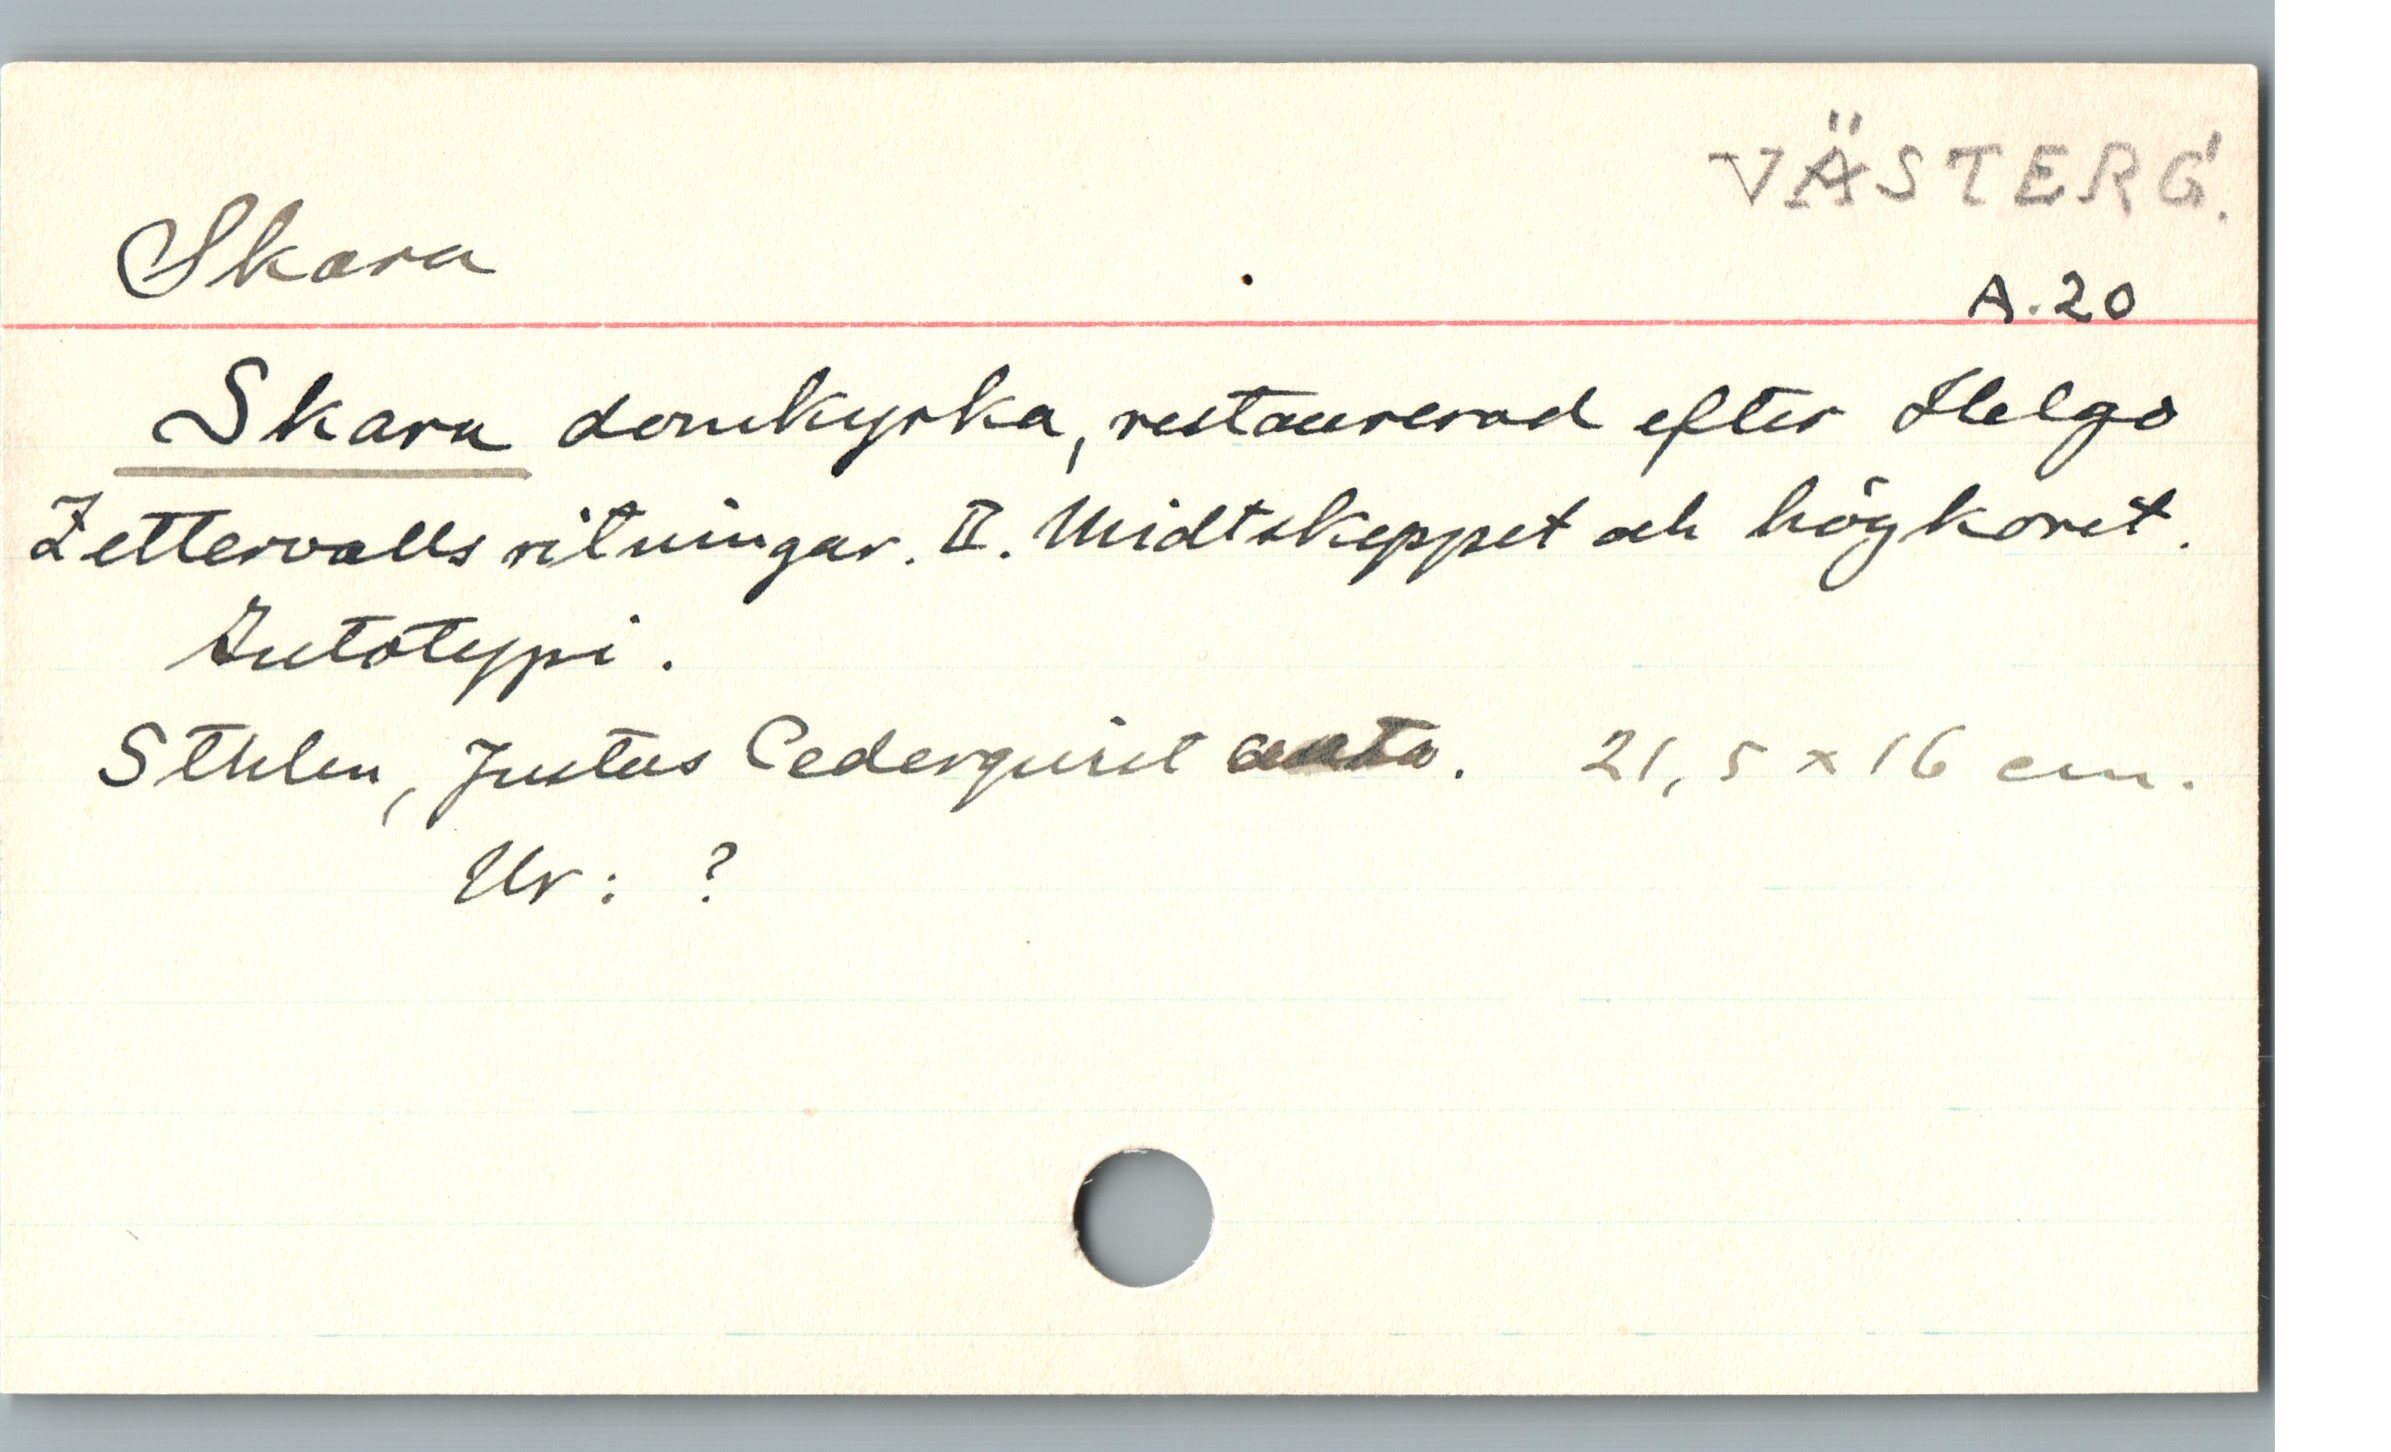 VÄSTERG.
Skara
A.20
Skara domkyrka, restaurerad efter Helgo
Zettervalls ritningar. II. Midtskeppet och högkoret.
Autotypi.
Sthlm, Justus Cederquist 21,5 x 16 cm.
Ur: ?